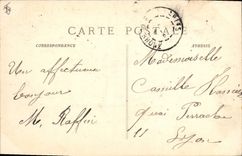 CARTE POSTALE
CORRESPONDANCE
Un affectueux
bonjour
M. Raffin
ADRESSE
Mademoiselle
Camille
quai Perrache
11
Lyon